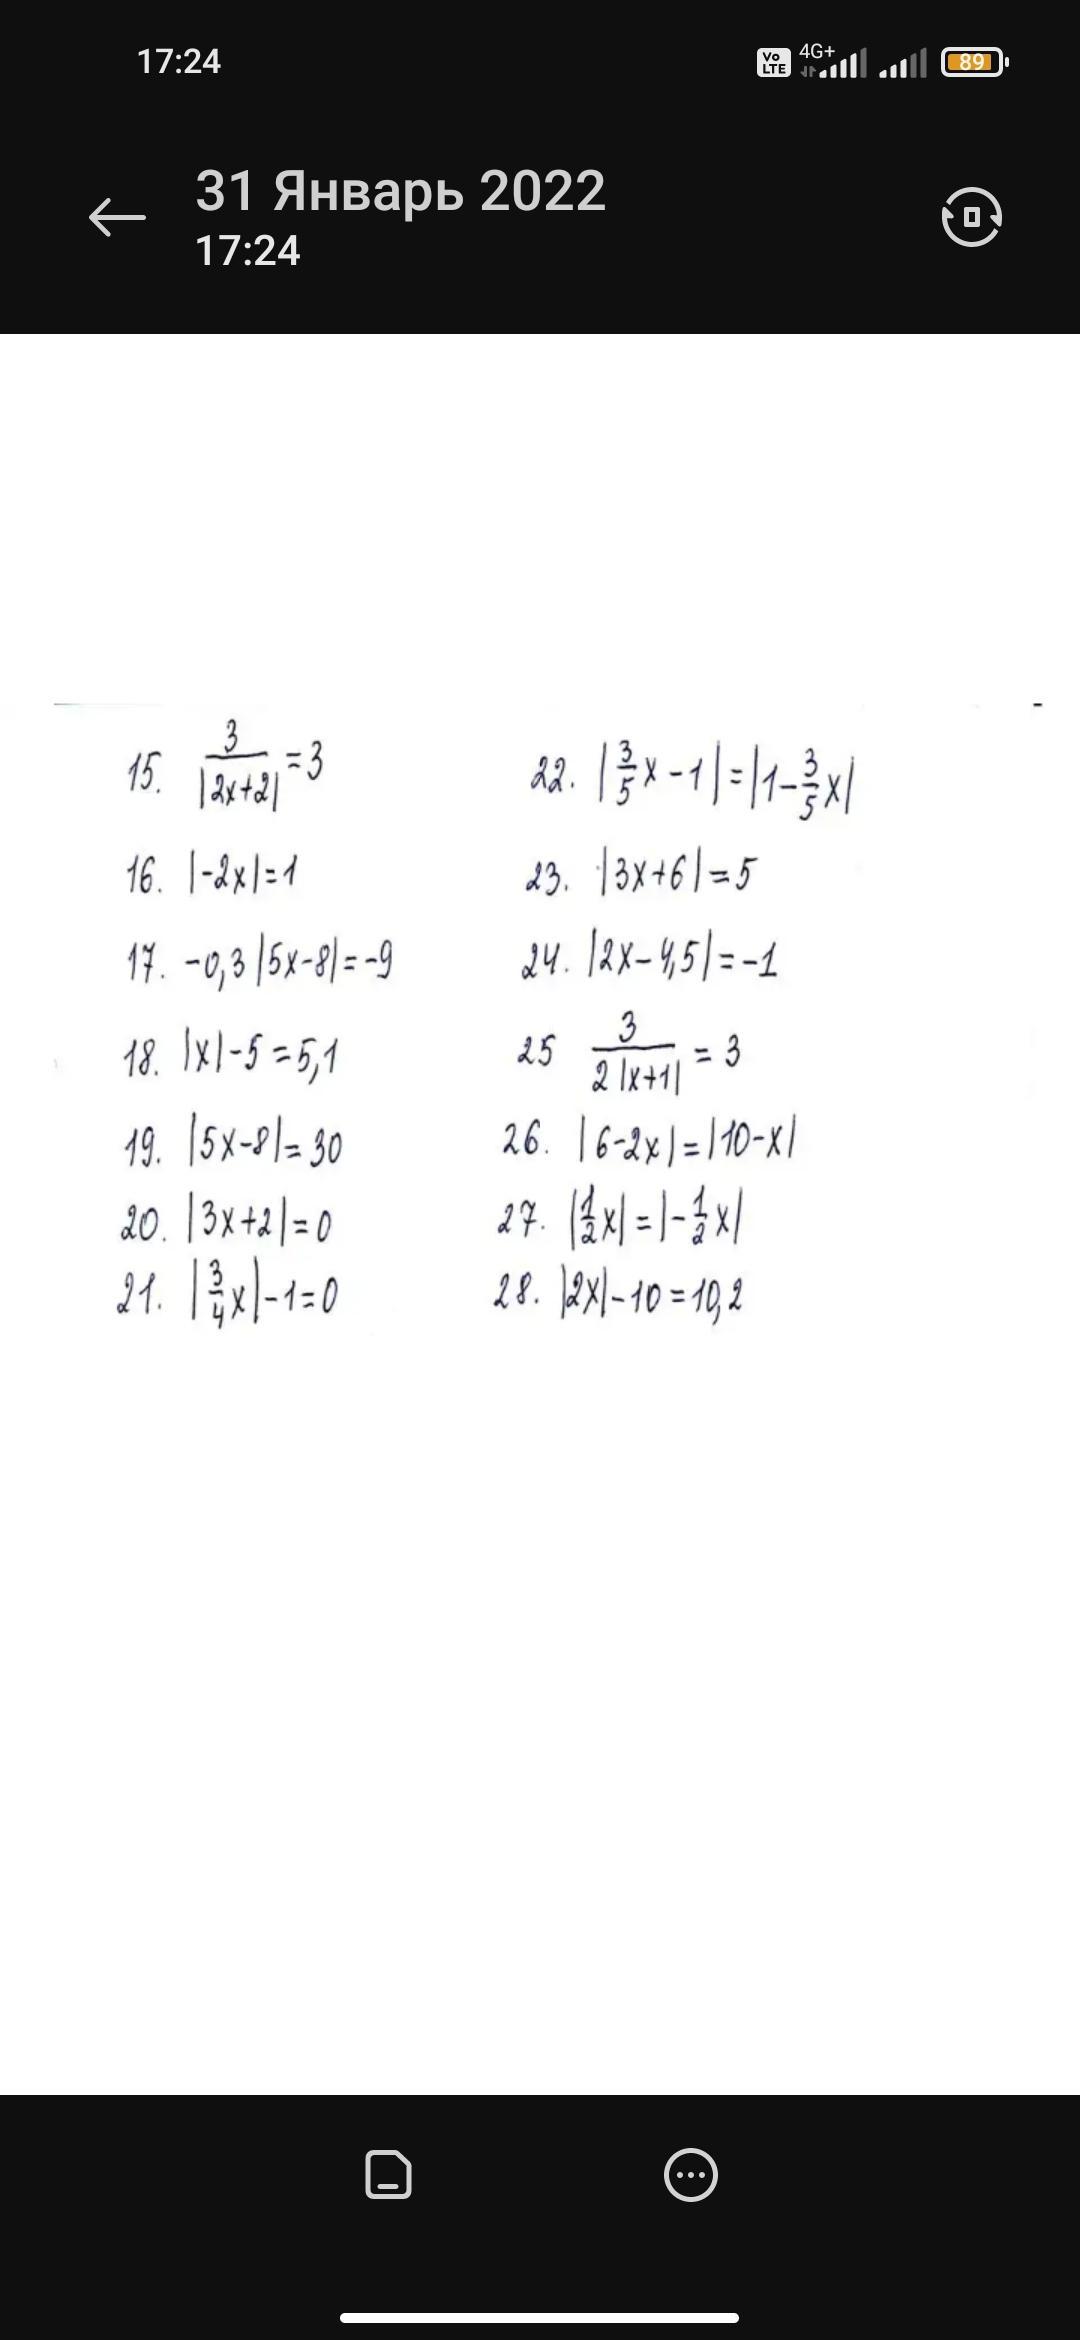 17:24
Vo LTE 4G+ 89
31 Январь 2022
17:24
15. 3/|2x+2| = 3
16. |-2x|=1
17. -0,3|5x-8|=-9
18. |x|-5=5,1
19. |5x-8|=30
20. |3x+2|=0
21. |3/4x|-1=0
22. |3/5x-1|=|1-3/5x|
23. |3x+6|=5
24. |2x-4,5|=-1
25 3/2|x+1| = 3
26. |6-2x|=|10-x|
27. |1/2x|=|-1/2x|
28. |2x|-10=10,2